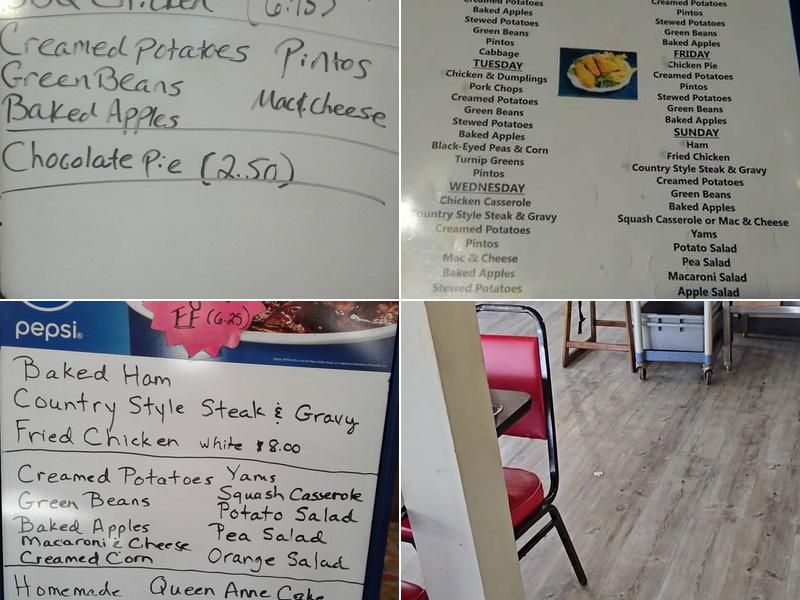 Chicken (6.75)
Creamed Potatoes Pintos
Green Beans
Mac & Cheese
Baked Apples
Chocolate Pie (2.50)
Creamed Potatoes
Baked Apples
Stewed Potatoes
Green Beans
Pintos
Cabbage
TUESDAY
Chicken & Dumplings
Pork Chops
Creamed Potatoes
Green Beans
Stewed Potatoes
Baked Apples
Black-Eyed Peas & Corn
Turnip Greens
Pintos
WEDNESDAY
Chicken Casserole
Country Style Steak & Gravy
Creamed Potatoes
Pintos
Mac & Cheese
Baked Apples
Stewed Potatoes
Creamed Potatoes
Pintos
Stewed Potatoes
Green Beans
Baked Apples
FRIDAY
Chicken Pie
Creamed Potatoes
Pintos
Stewed Potatoes
Green Beans
Baked Apples
SUNDAY
Ham
Fried Chicken
Country Style Steak & Gravy
Creamed Potatoes
Green Beans
Baked Apples
Squash Casserole or Mac & Cheese
Yams
Potato Salad
Pea Salad
Macaroni Salad
Apple Salad
pepsi
FF (6.25)
Baked Ham
Country Style Steak & Gravy
Fried Chicken white $8.00
Creamed Potatoes Yams
Green Beans Squash Casserole
Potato Salad
Baked Apples Pea Salad
Macaroni & Cheese
Creamed Corn Orange Salad
Homemade Queen Anne Cake